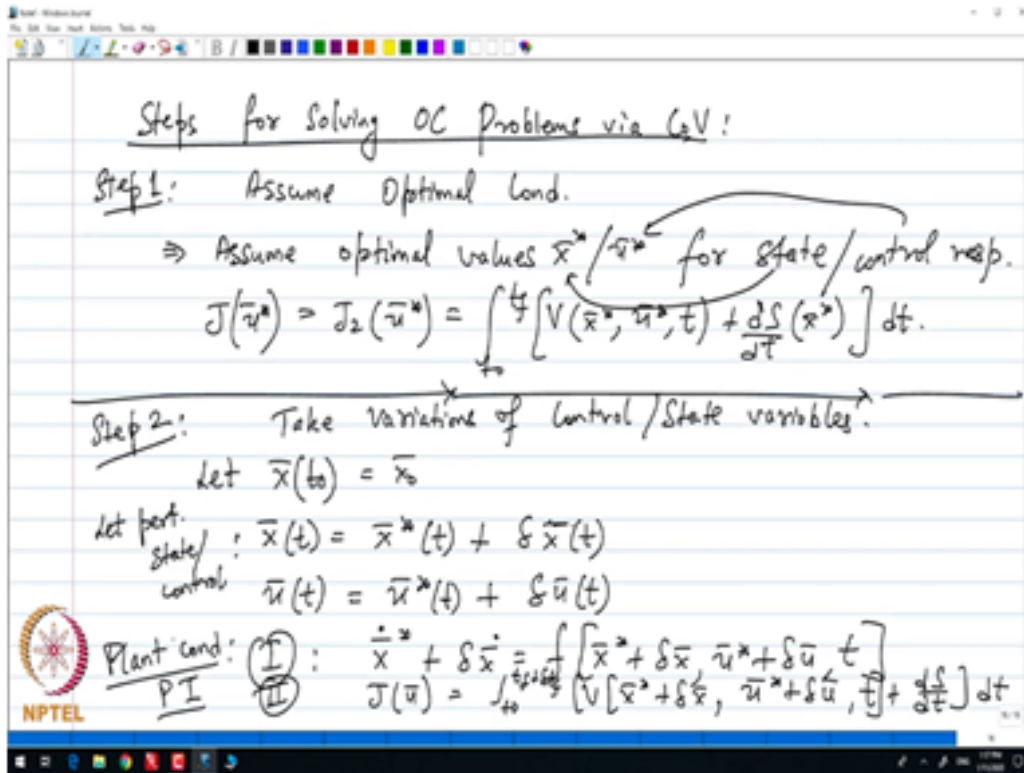 Steps for Solving OC Problems via CoV:
Step 1: Assume Optimal Cond.
⇒ Assume optimal values x̄*/ū* for state/control resp.
J(ū*) = J₂(ū*) = ∫_{t0}^{tf} [V(x̄*, ū*, t) + dS/dt (x̄*)] dt.
Step 2: Take variations of Control/State variables.
Let x̄(t0) = x̄0
Let pert. state/control : x̄(t) = x̄*(t) + δx̄(t)
ū(t) = ū*(t) + δū(t)
Plant cond: I : ẋ̄* + δẋ̄ = f[x̄* + δx̄, ū* + δū, t]
PI II J(ū) = ∫_{t0}^{tf+δtf} [V[x̄* + δx̄, ū* + δū, t] + dS/dt] dt
NPTEL